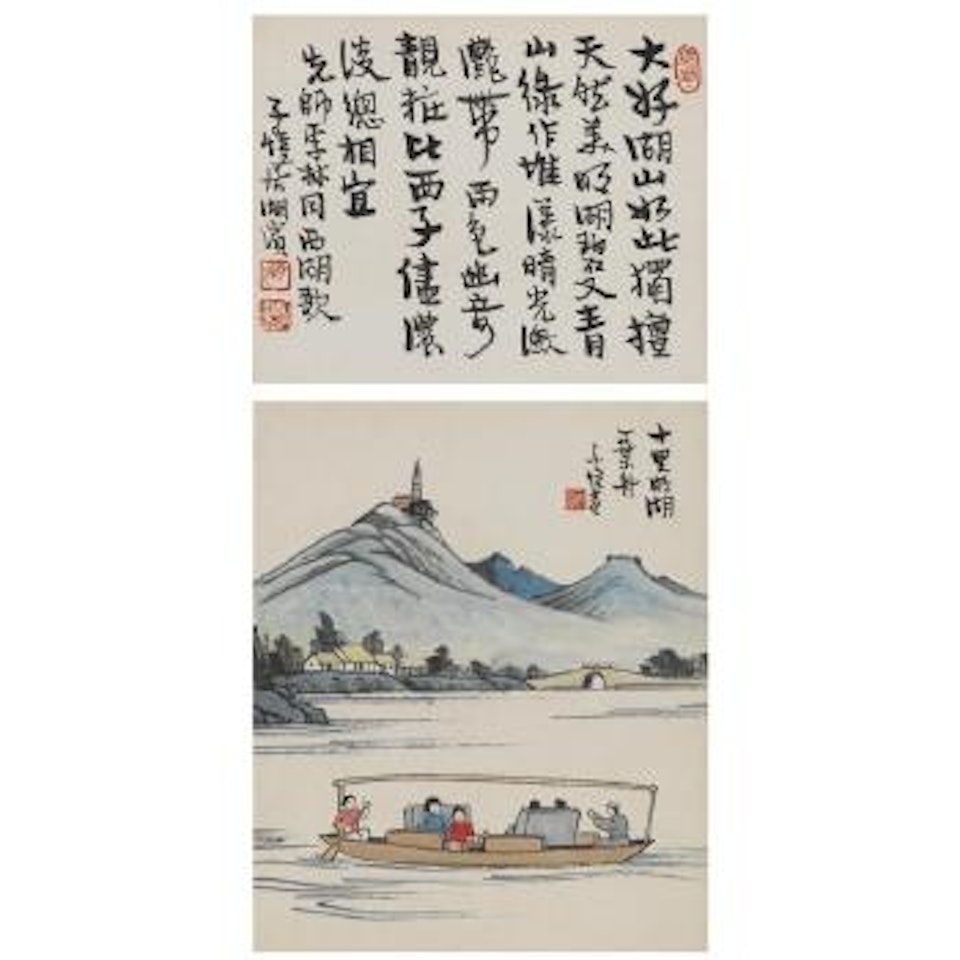 大好湖山如此獨擅
天然美明湖碧又青
山綠作堆漾晴光瀲
灩帶雨色幽奇
靚粧比西子儘濃
淡總相宜
先師李叔同西湖歌
子愷 湖濱
十里明湖
一葉舟
子愷畫